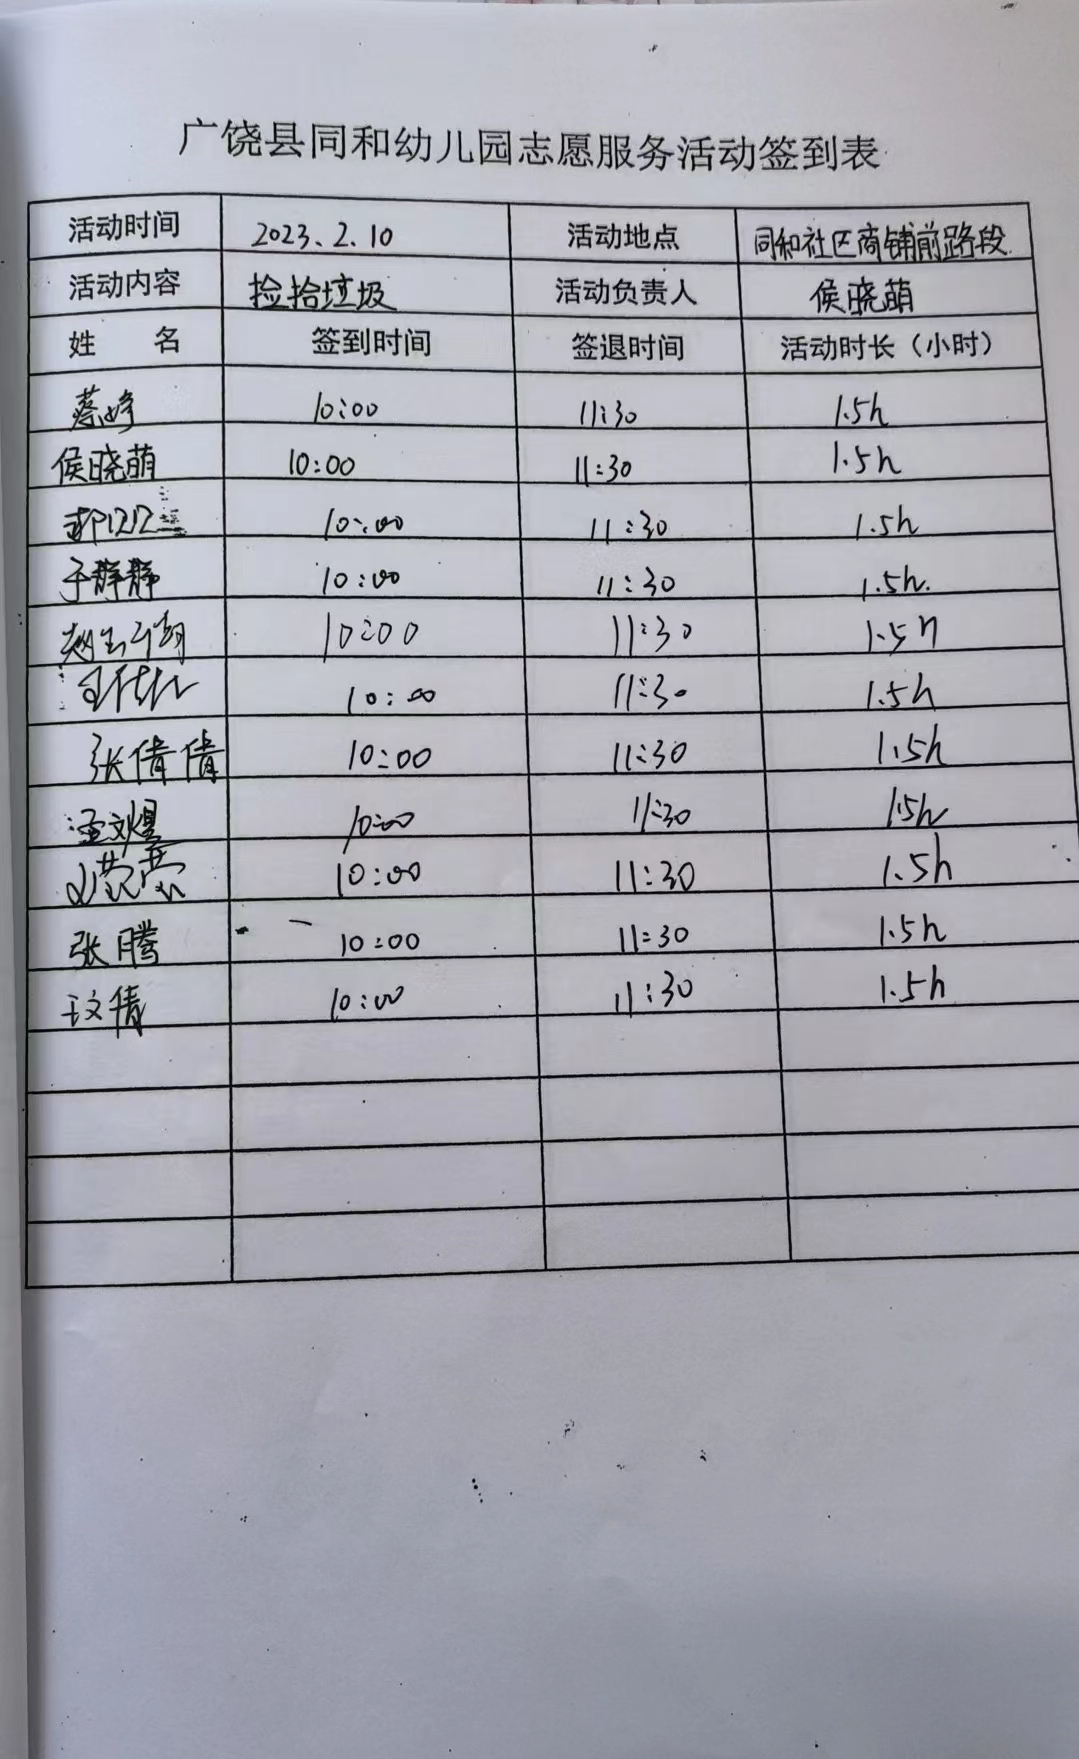 广饶县同和幼儿园志愿服务活动签到表
活动时间 2023.2.10 活动地点 同和社区商铺前路段
活动内容 捡拾垃圾 活动负责人 侯晓萌
姓 名 签到时间 签退时间 活动时长（小时）
蔡峰 10:00 11:30 1.5h
侯晓萌 10:00 11:30 1.5h
10:00 11:30 1.5h
于静静 10:00 11:30 1.5h.
10:00 11:30 1.5h
10:00 11:30 1.5h
张倩倩 10:00 11:30 1.5h
10:00 11:30 1.5h
10:00 11:30 1.5h
张腾 10:00 11:30 1.5h
王文倩 10:00 11:30 1.5h